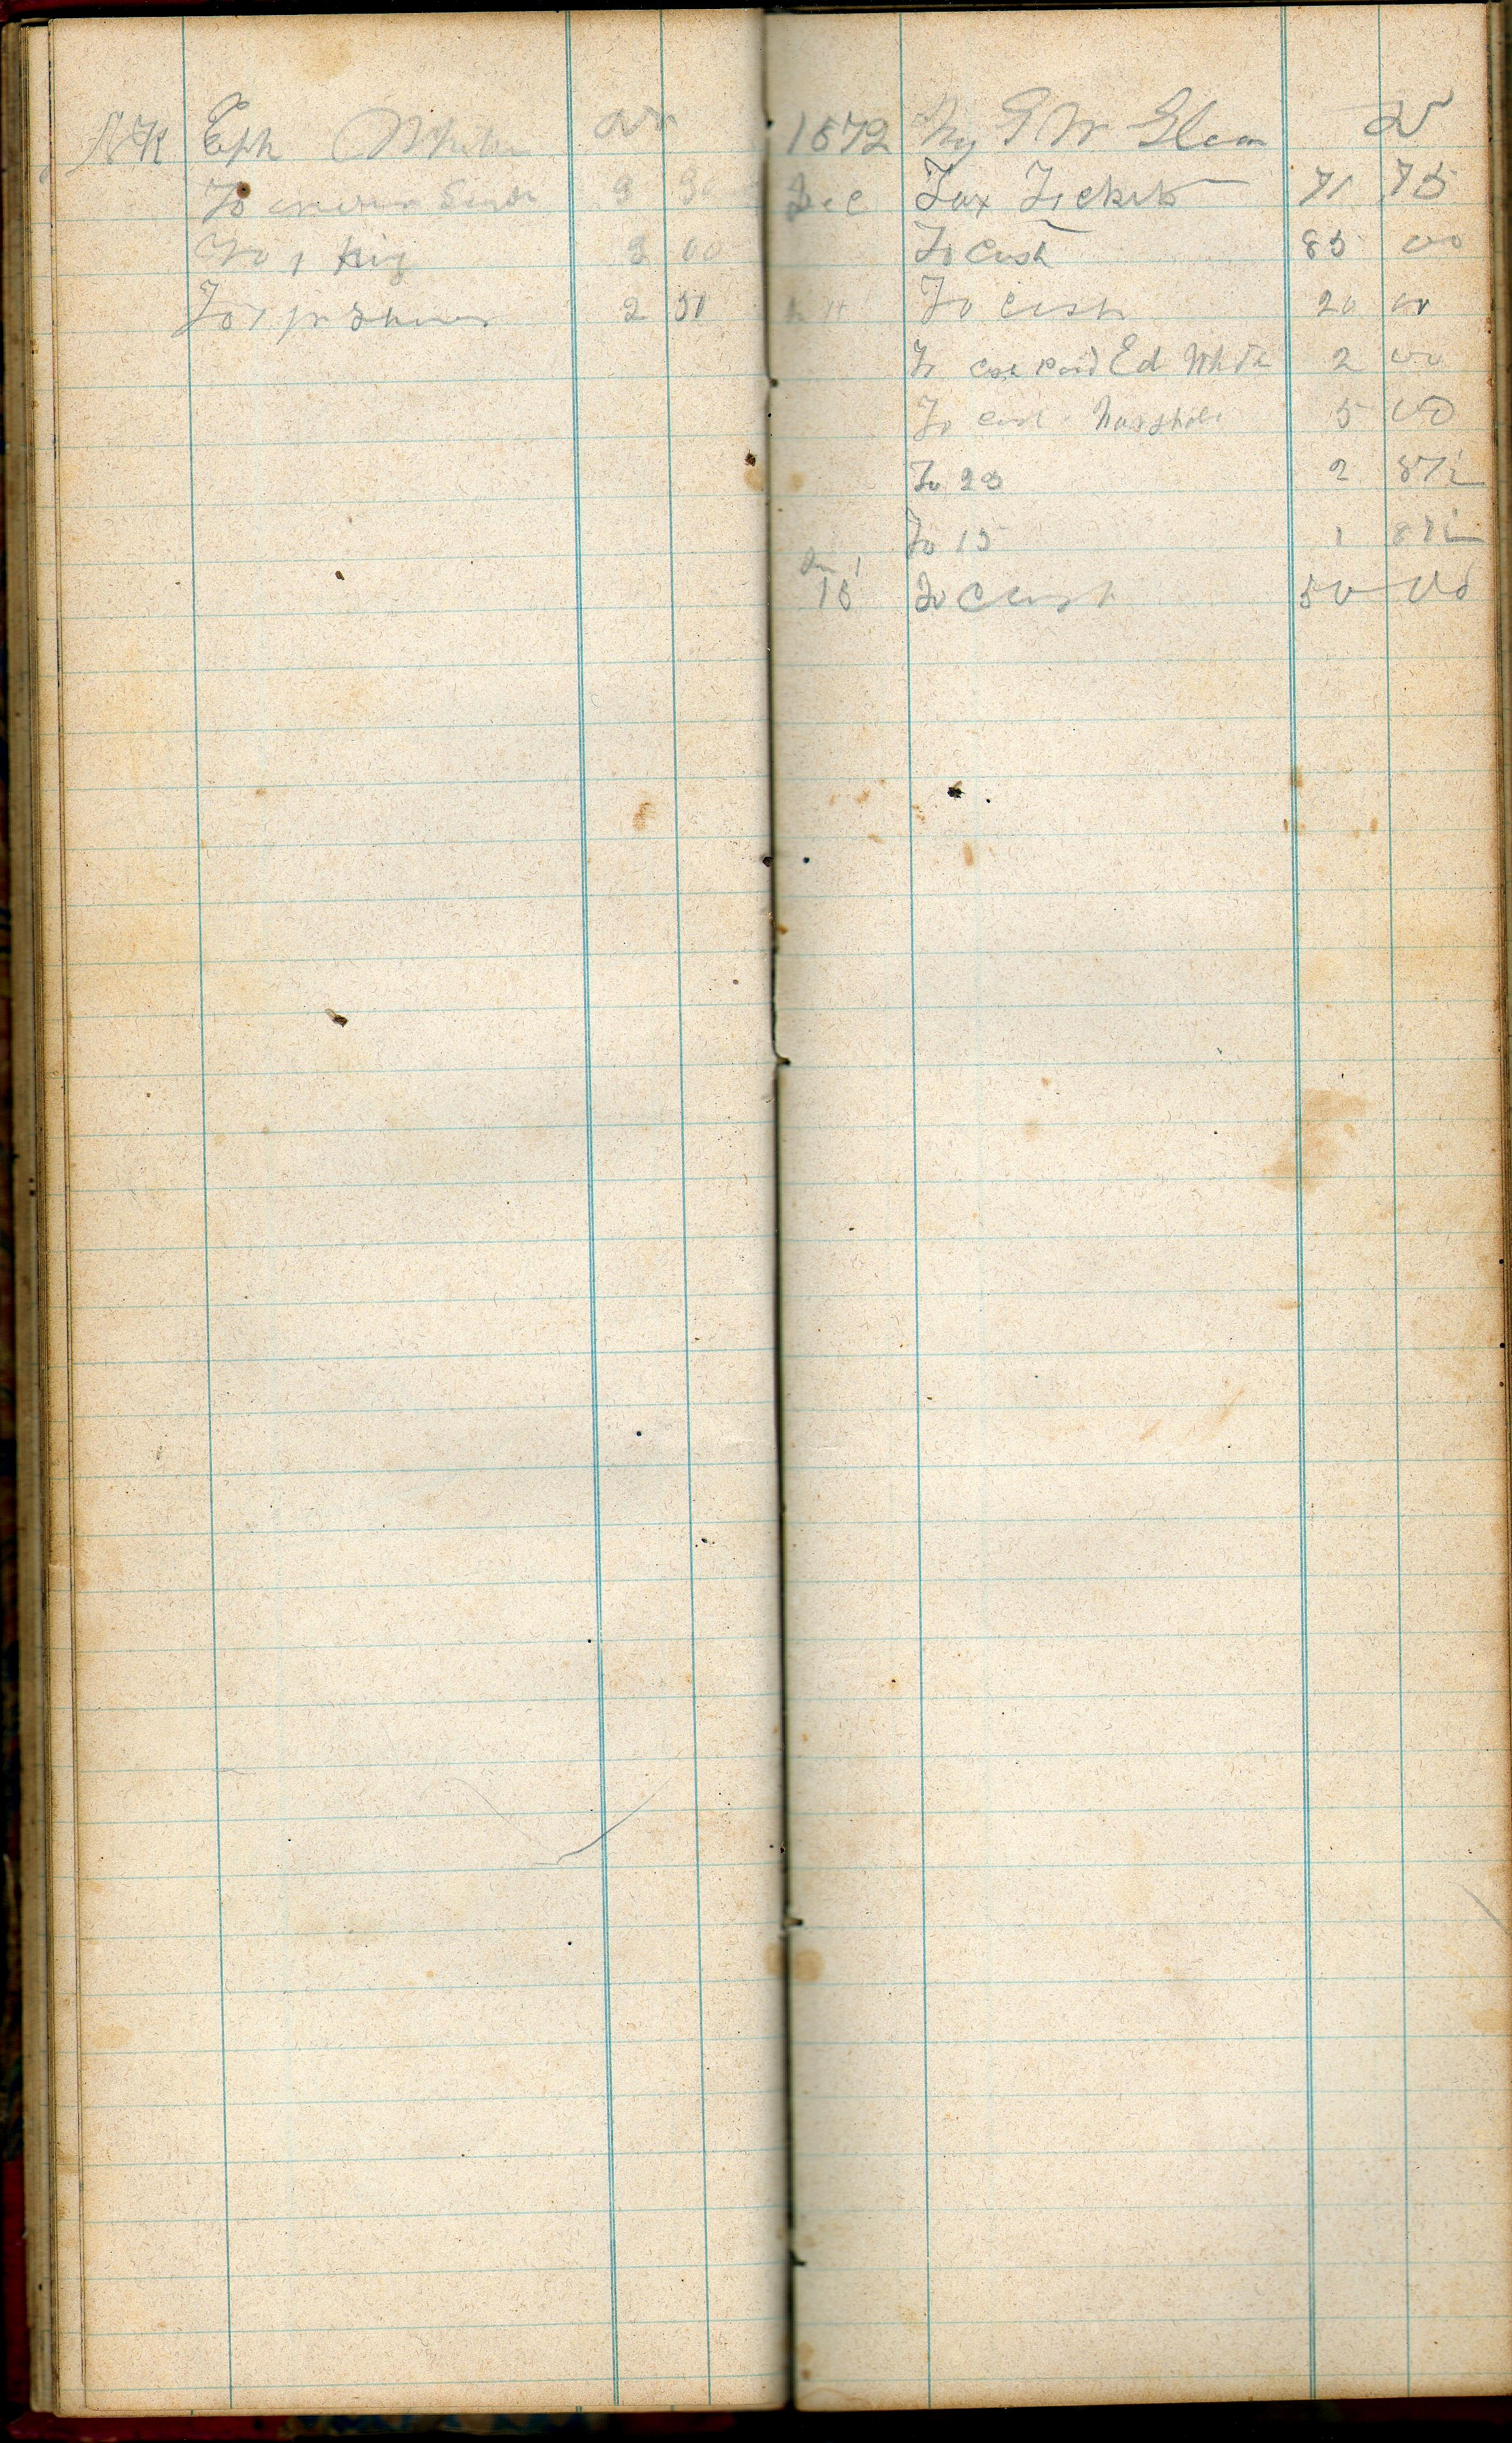 Eph White Dr
To
To 1 Hig 3 00
To 1 pr Shoes 2 50
1872 G W Dr
Dec Tax Tickets 71 75
To Cash 85 00
To Cash 20 00
To Cash Paid Ed White 2 00
To Cash 5 00
To 23 2 87½
To 15 1 87½
18 To Cash 50 00